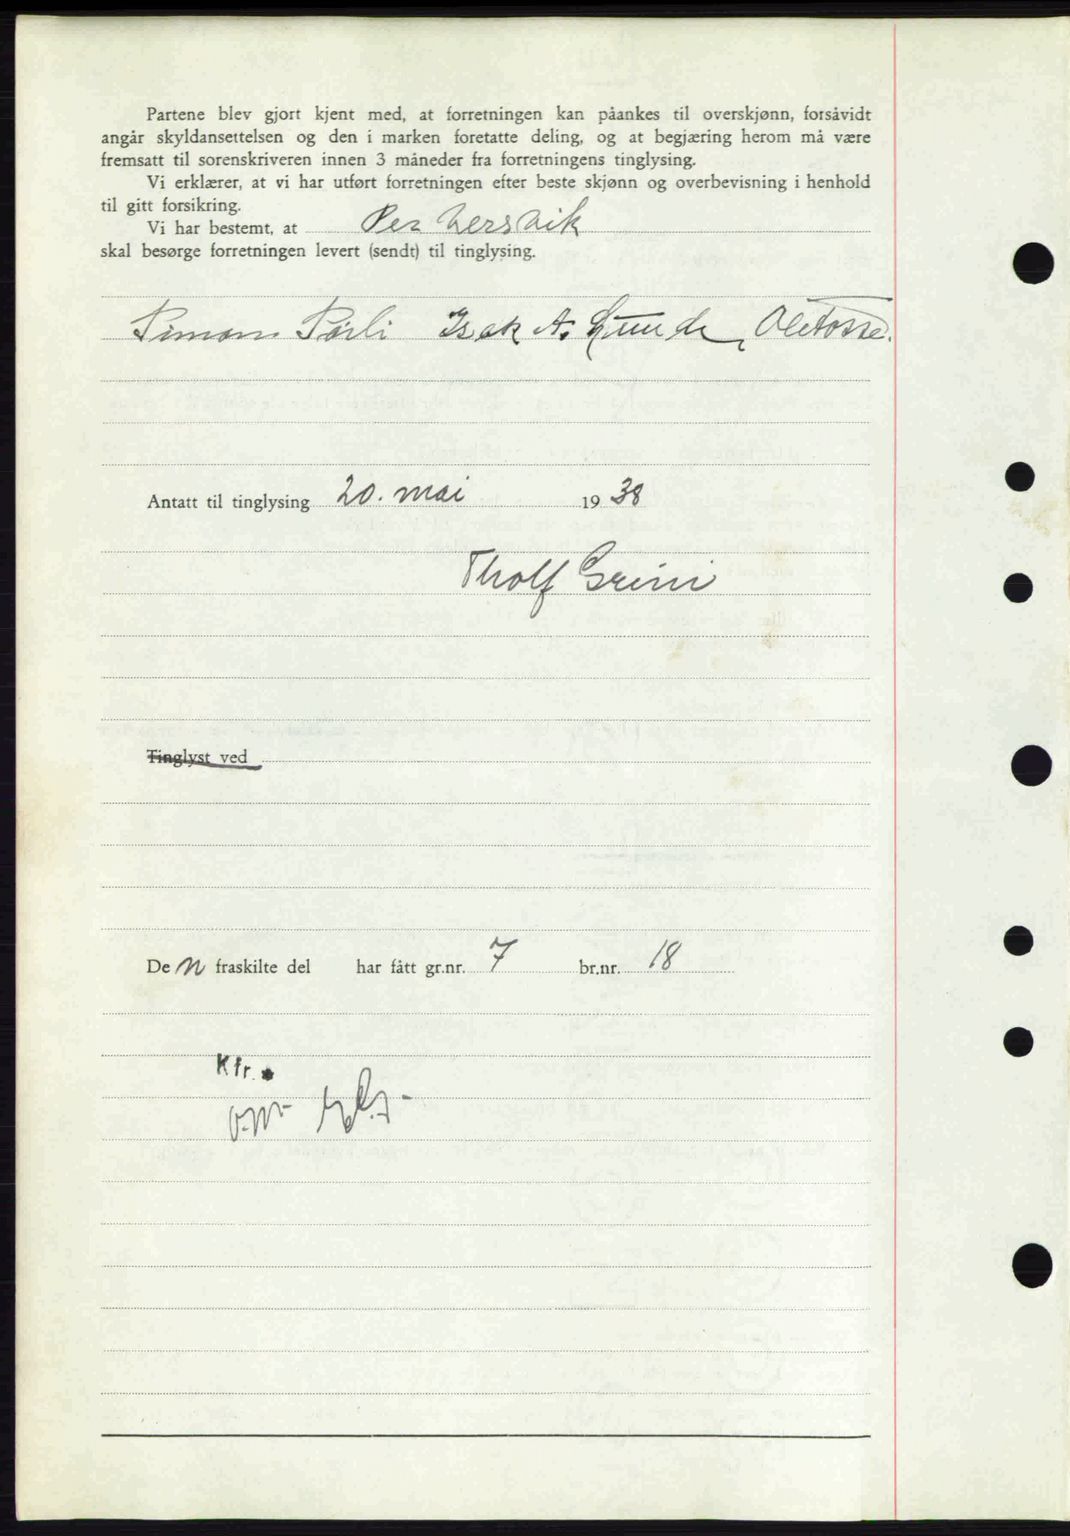 Partene blev gjort kjent med, at forretningen kan påankes til overskjønn, forsåvidt
angår skyldansettelsen og den i marken foretatte deling, og at begjæring herom må være
fremsatt til sorenskriveren innen 3 måneder fra forretningens tinglysing.
Vi erklærer, at vi har utført forretningen efter beste skjønn og overbevisning i henhold
til gitt forsikring.
Vi har bestemt, at Per
skal besørge forretningen levert (sendt) til tinglysing.
Simon Isak A. Lunde, Ole Fosse.
Antatt til tinglysing 20. mai 1938
Tholf Grini
Tinglyst ved
Den fraskilte del har fått gr.nr. 7 br.nr. 18
Kfr.